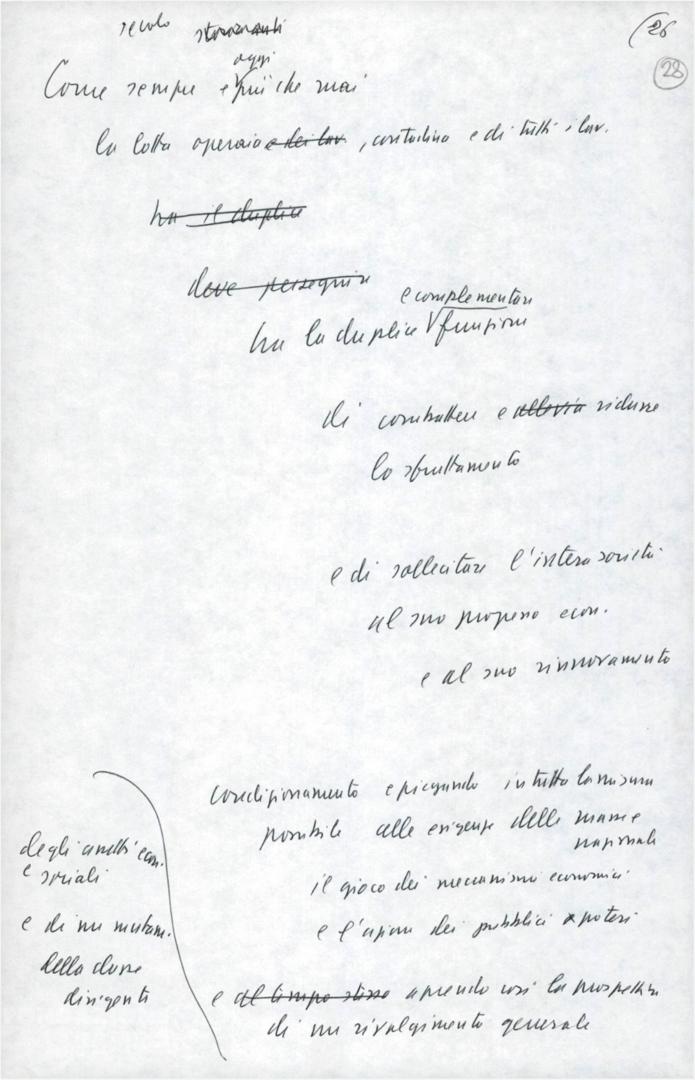 (26
28
secolo stravanti
oggi
Come sempre e più che mai
la lotta operaia e dei lav. , contadina e di tutti i lav.
ha il duplice
deve perseguire
e complementare
ha la duplice funzione
di combattere e allevia ridurre
lo sfruttamento
e di sollecitare l'intera società
al suo progresso econ.
e al suo rinnovamento
condizionamento e piegando in tutta la misura
possibile alle esigenze delle masse e
nazionale
il gioco dei meccanismi economici
e l'azione dei pubblici poteri
e al tempo stesso aprendo così la prospettiva
di un rivolgimento generale
degli assetti econ.
e sociali
e di un mutam.
della classe
dirigente